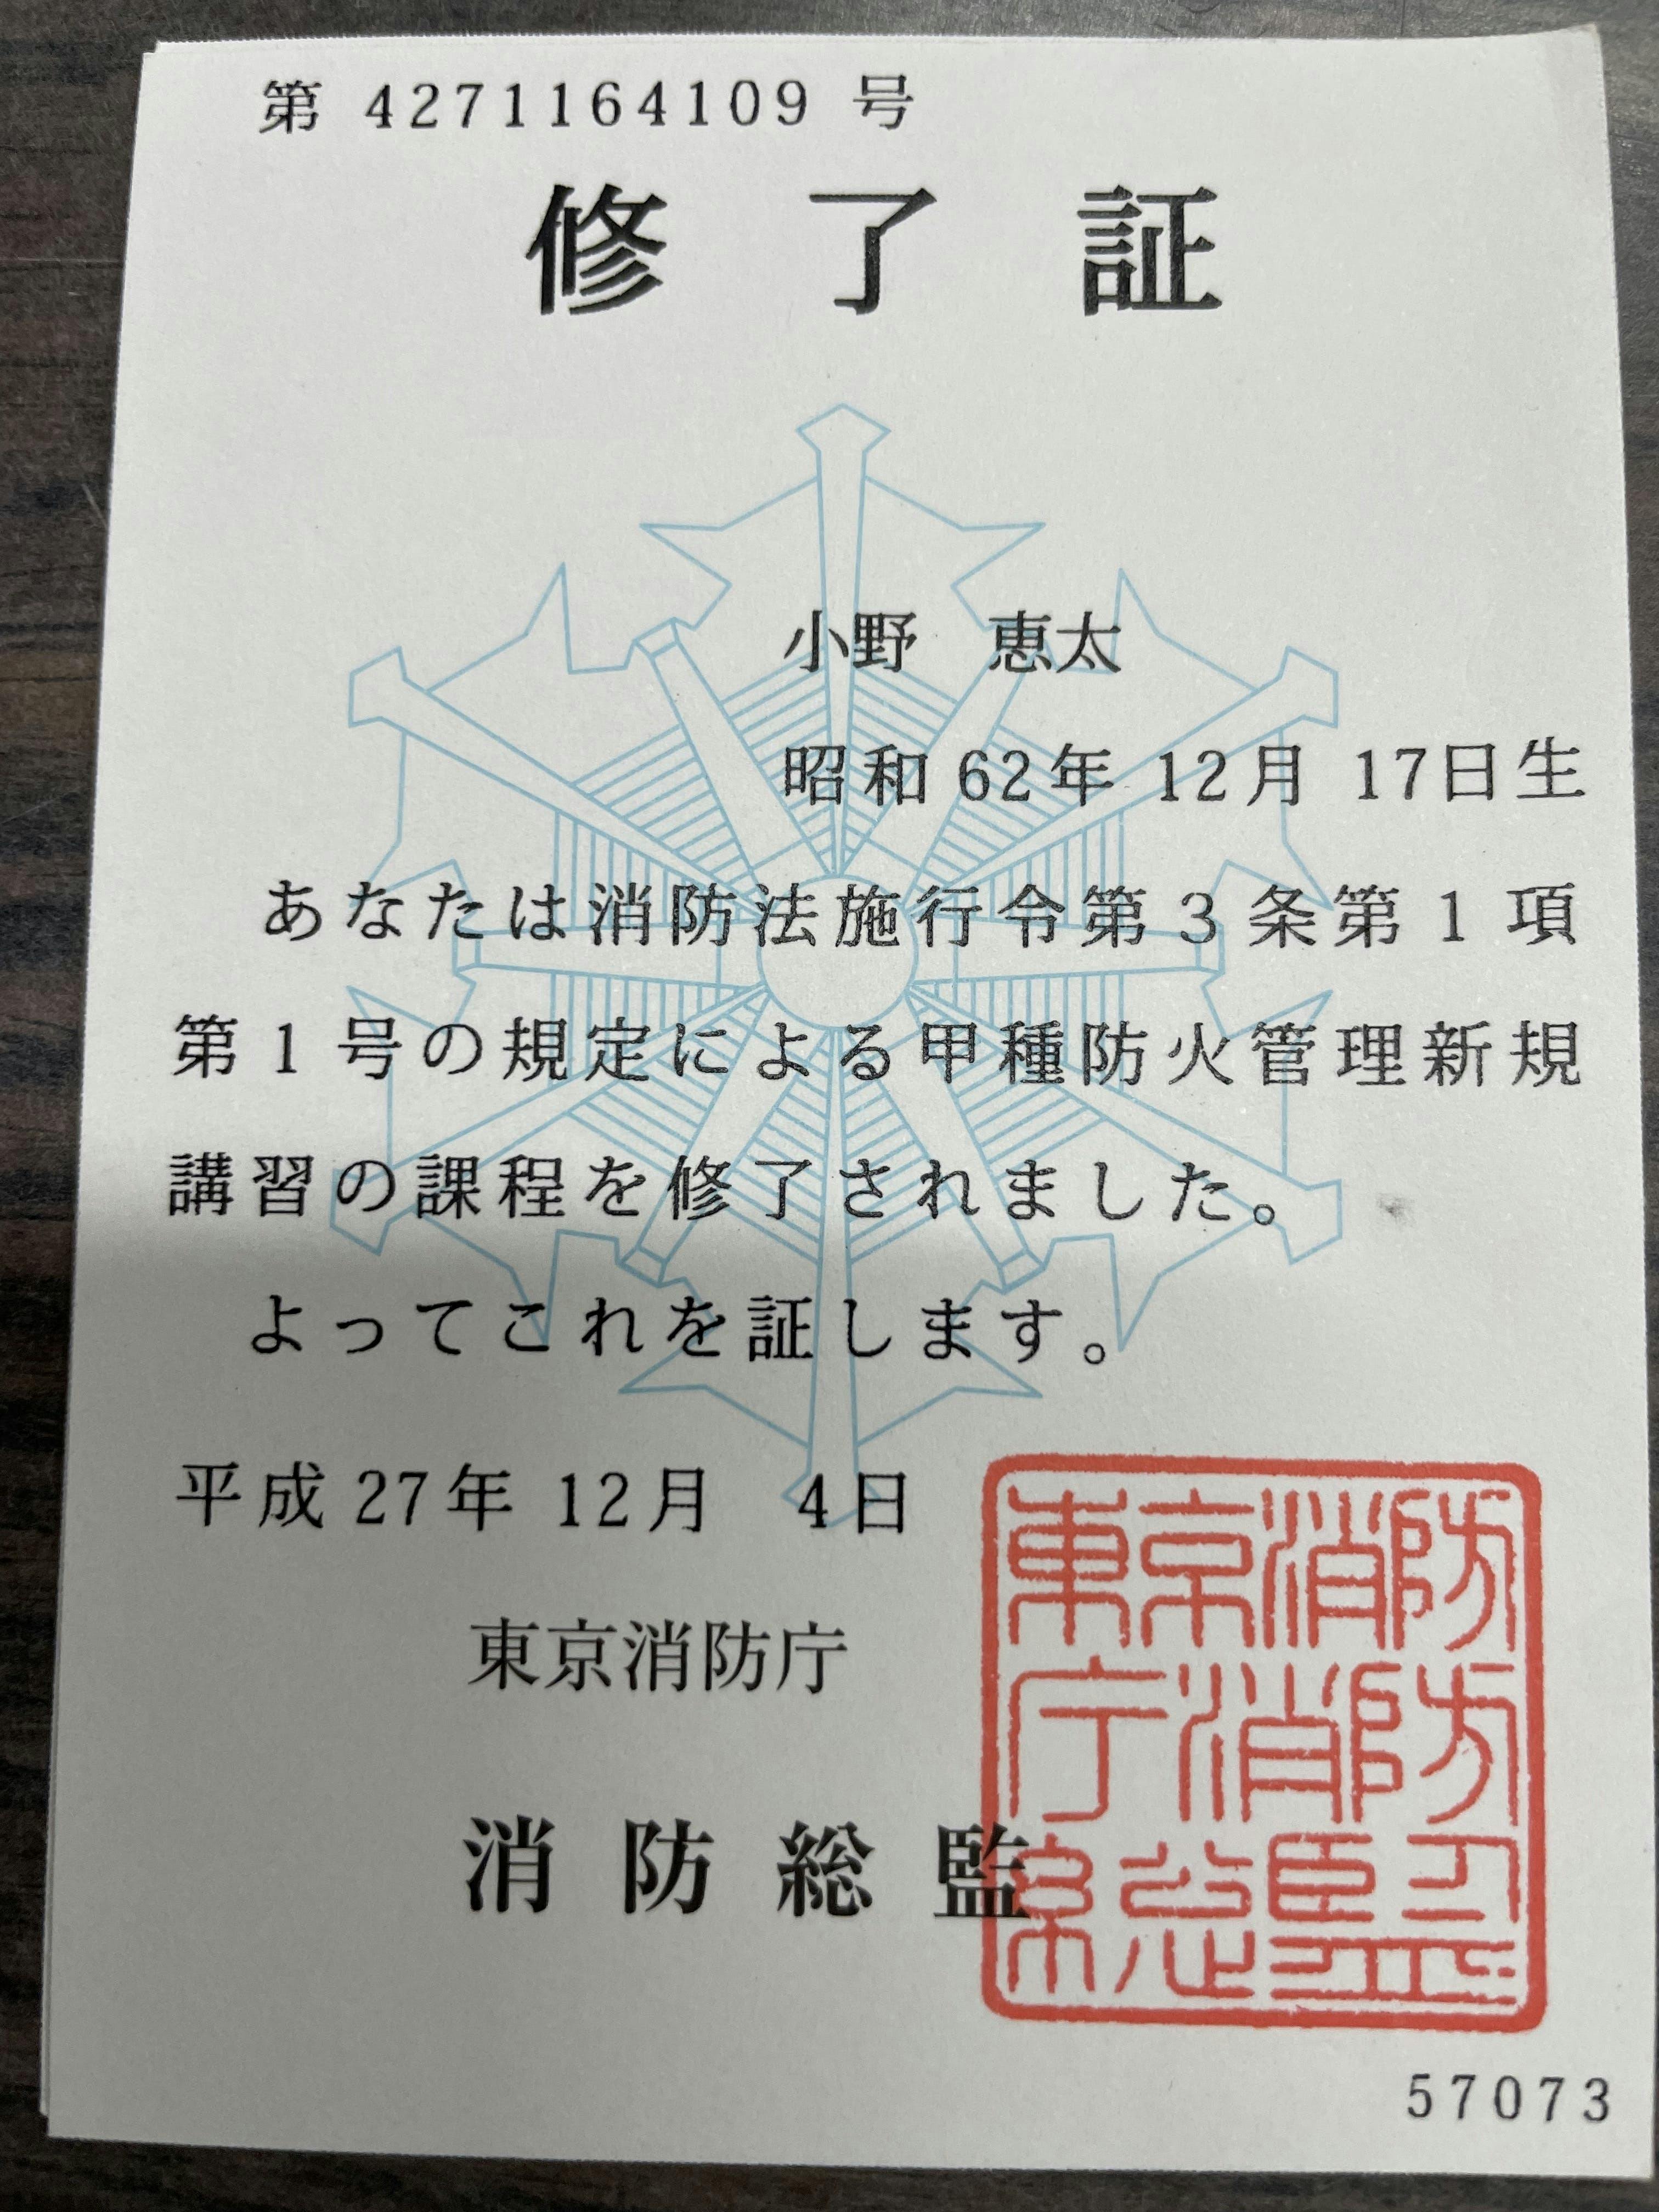 第 4271164109 号
修了証
小野 恵太
昭和 62年 12月 17日生
あなたは消防法施行令第3条第1項
第1号の規定による甲種防火管理新規
講習の課程を修了されました。
よってこれを証します。
平成 27年 12月 4日
東京消防庁
消防総監
東京消防
庁消防
総監
57073